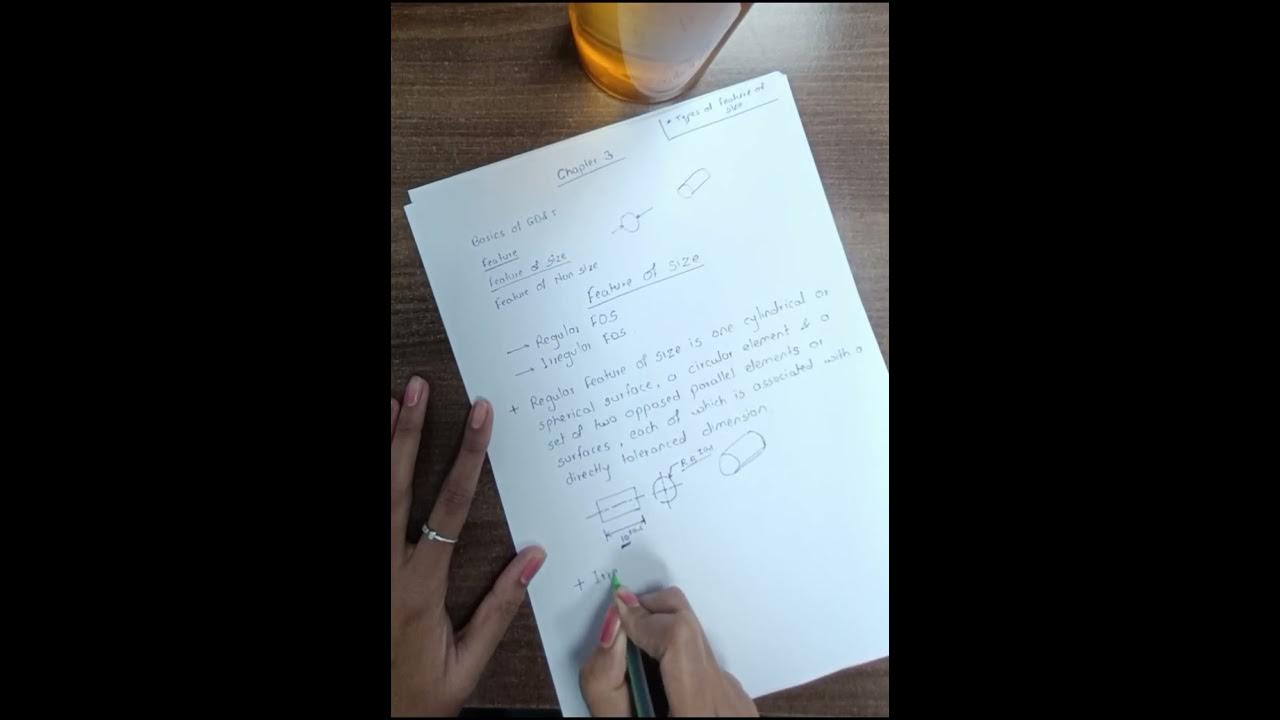 * Types of Feature of
Size
Chapter 3
Basics of GD&T
Feature
Feature of Size
Feature of Non Size
Feature of Size
→ Regular FOS
→ Irregular FOS
+ Regular feature of size is one cylindrical or
spherical surface, a circular element & a
set of two opposed parallel elements or
surfaces, each of which is associated with a
directly toleranced dimension.
+ Irre